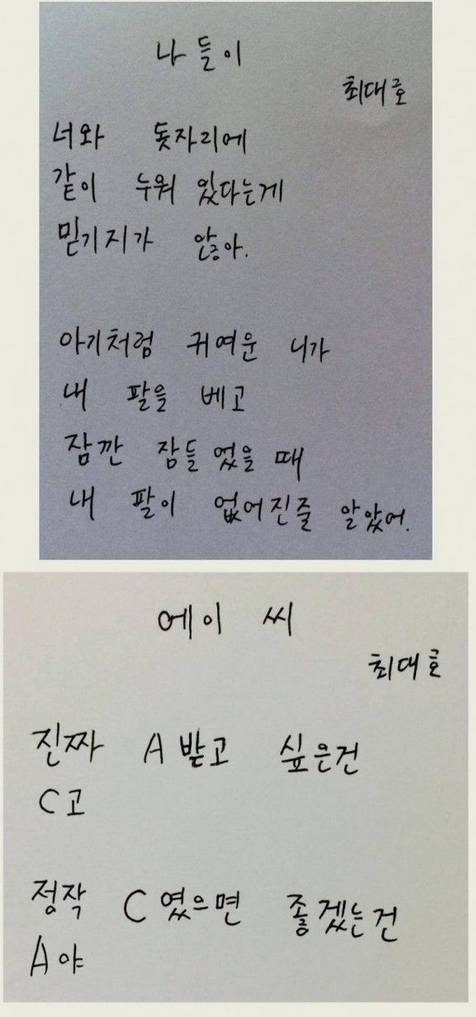 나들이
최대호
너와 돗자리에
같이 누워 있다는게
믿기지가 않아.
아기처럼 귀여운 니가
내 팔을 베고
잠깐 잠들었을 때
내 팔이 없어진줄 알았어.
에이 씨
최대호
진짜 A받고 싶은건
C고
정작 C였으면 좋겠는건
A야